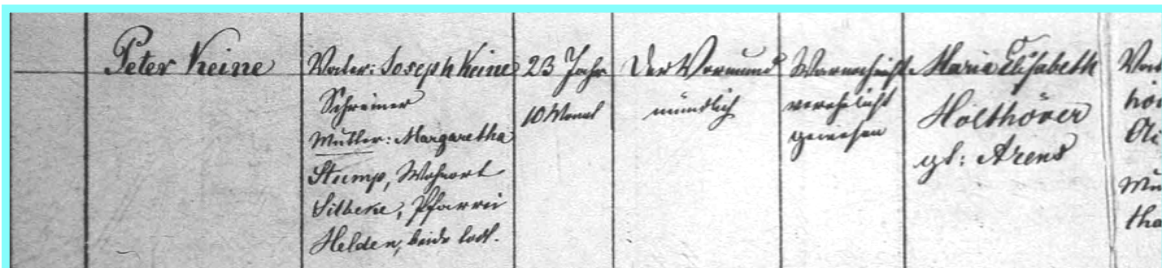 Peter Keine
Vater: Joseph Keine
Schreiner
Mutter: Margaretha
Stump, Wohnort
Silbeke, Pfarrei
Helden, beide todt.
23 Jahr
10 Monat
Der Vormund
mündlich
War noch nicht
verehelicht
gewesen
Maria Elisabeth
Holthöver
gt: Arens